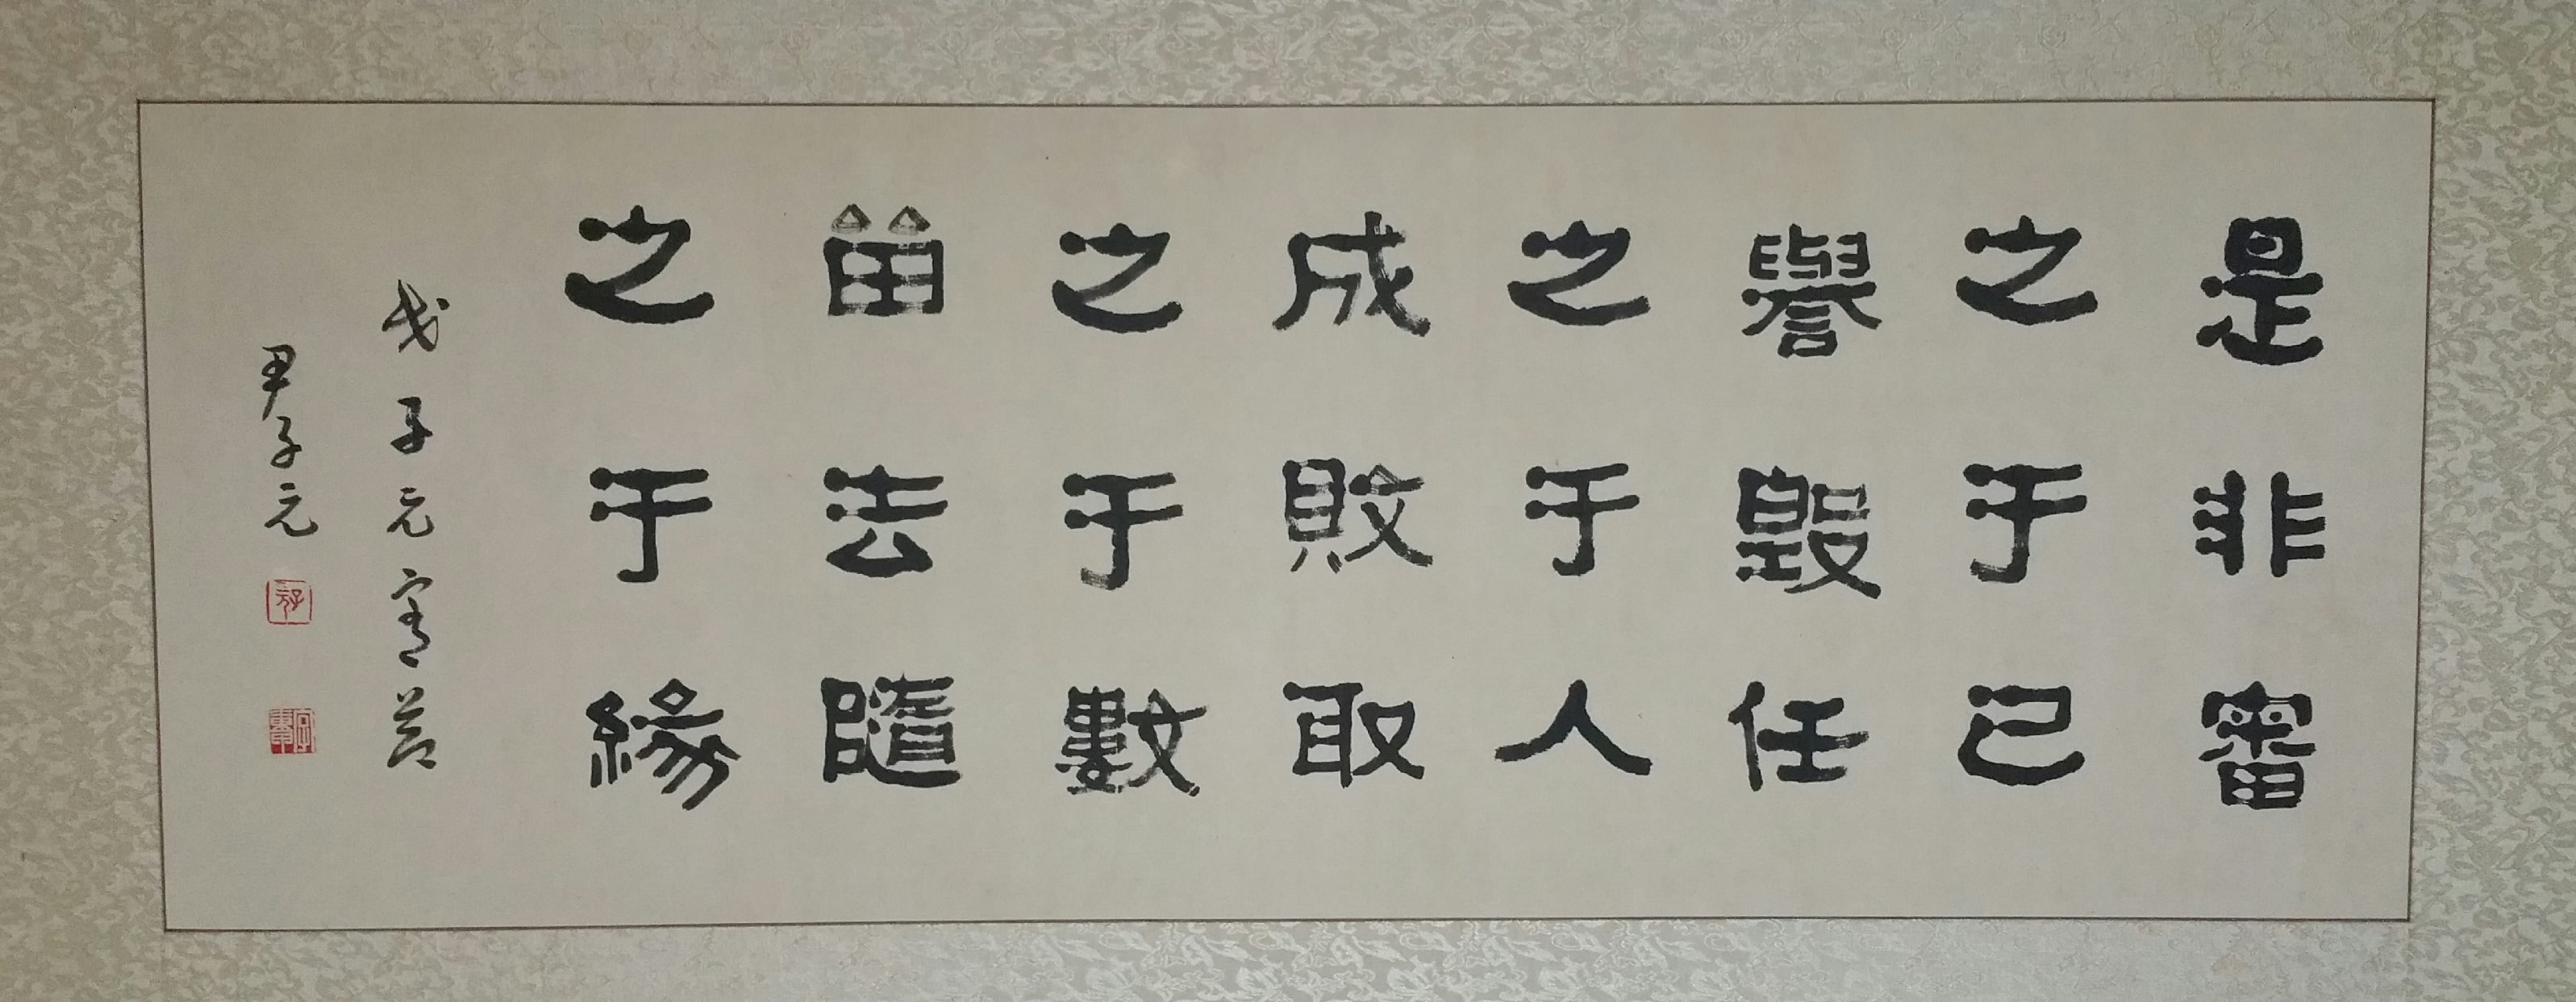 是非審
之于己
譽毀任
之于人
成敗取
之于數
法隨
之于緣
戊子元宵節
尹子元